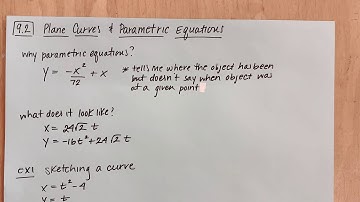 9.2 Plane Curves & Parametric Equations
why parametric equations?
y = -x²/72 + x
* tells me where the object has been
but doesn't say when object was
at a given point
what does it look like?
x = 24√2 t
y = -16t² + 24√2 t
ex1 sketching a curve
x = t² - 4
y = t